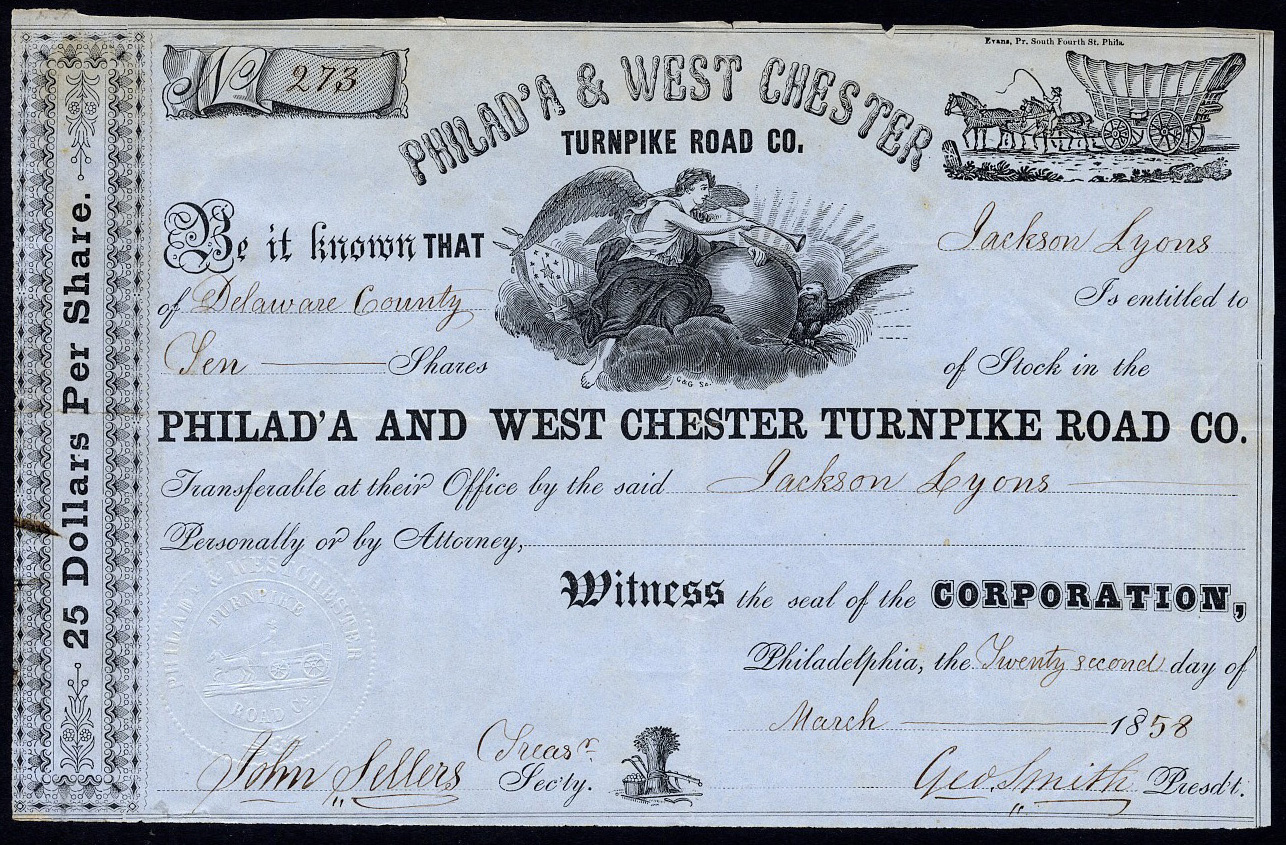 Evans, Pr. South Fourth St. Phila.
No 273
PHILAD'A & WEST CHESTER
TURNPIKE ROAD CO.
25 Dollars Per Share.
Be it known THAT Jackson Lyons
of Delaware County Is entitled to
Ten Shares of Stock in the
G&G Sc.
PHILAD'A AND WEST CHESTER TURNPIKE ROAD CO.
Transferable at their Office by the said Jackson Lyons
Personally or by Attorney,
Witness the seal of the CORPORATION,
PHILAD & WEST CHESTER
TURNPIKE
ROAD CO
Philadelphia, the Twenty second day of
March 1858
John Sellers Treasr Sec'ty. Geo. Smith Presd't.